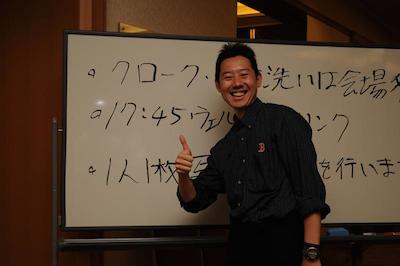 。クローク・洗いは会場
。17:45 ウェル リンク
。1人1枚 を行いま
B